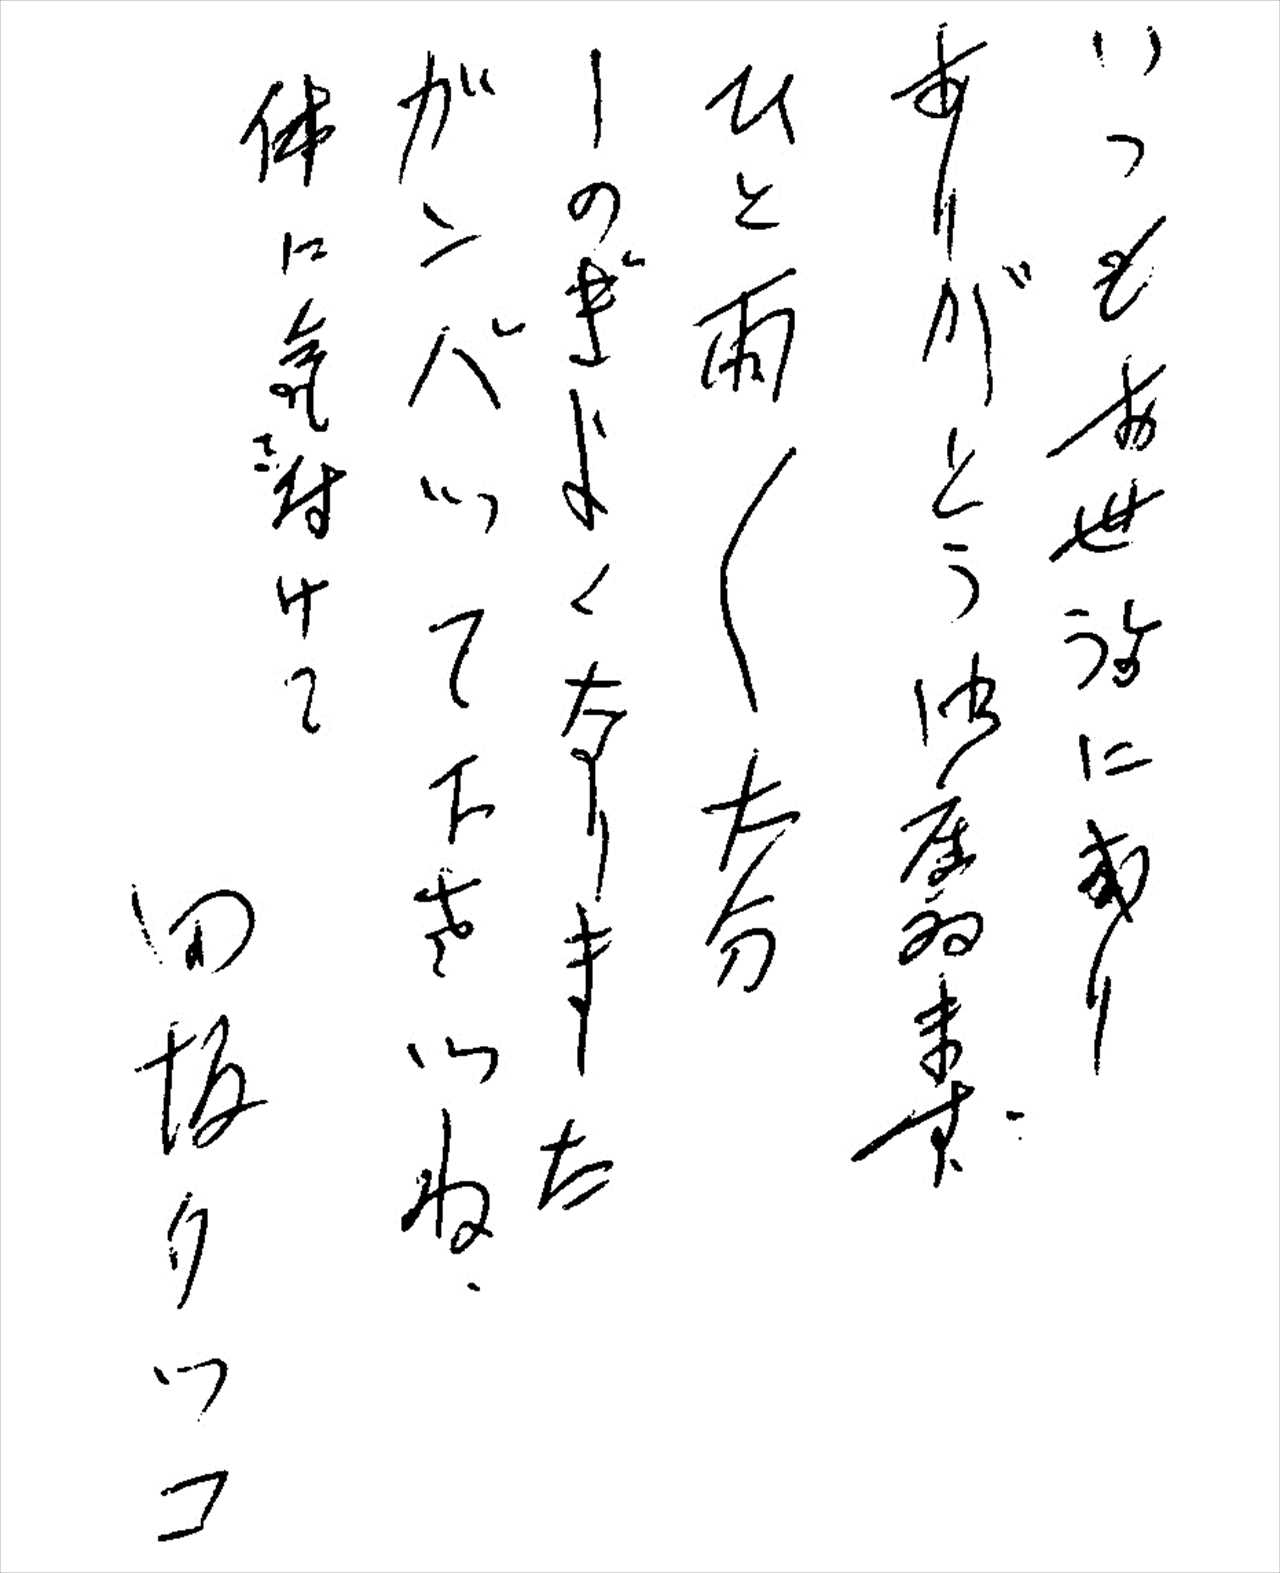 いつもお世話に成り
ありがとう御座ゐます
ひと雨〱大分
しのぎよくなりました
ガンバッて下さいね、
体に気を付けて
田坂タツコ